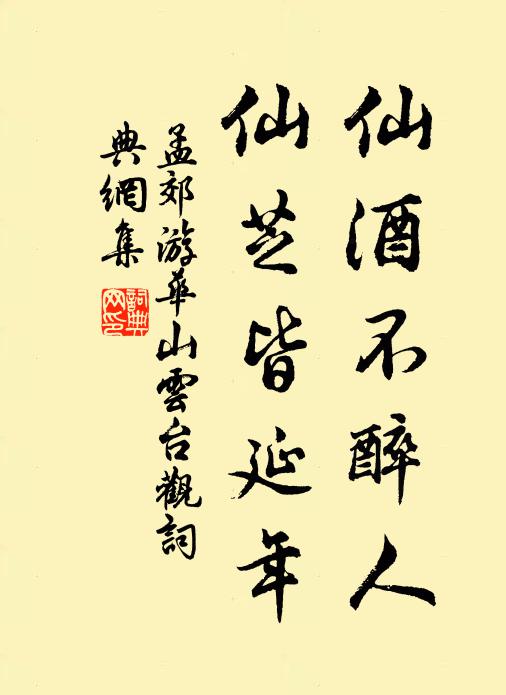 仙酒不醉人
仙芝皆延年
孟郊游華山雲台觀詞
典網集
詞典
网印